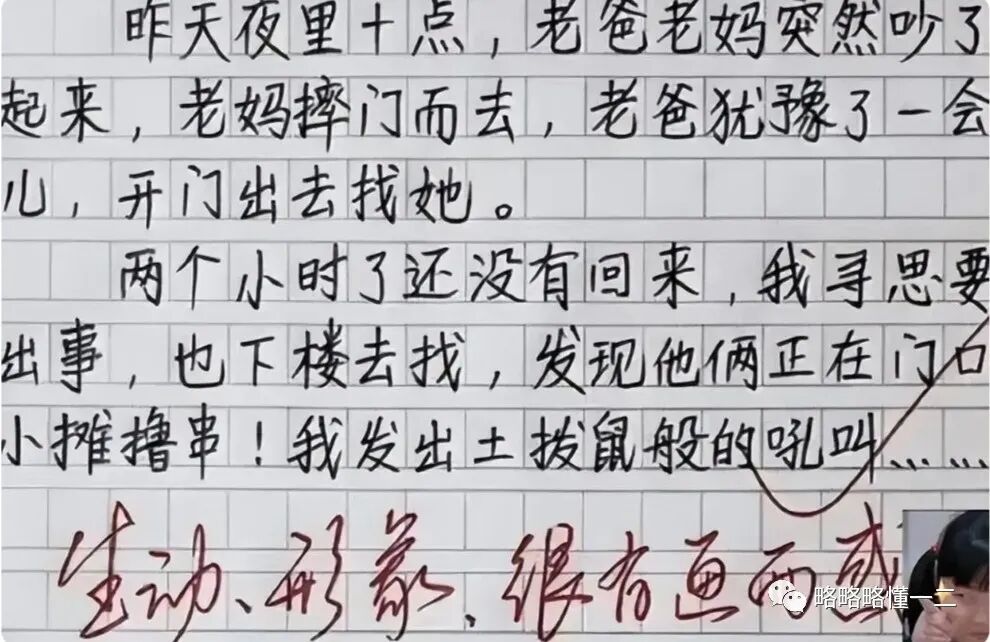 昨天夜里十点，老爸老妈突然吵了
起来，老妈摔门而去，老爸犹豫了一会
儿，开门出去找她。
两个小时了还没有回来，我寻思要
出事，也下楼去找，发现他俩正在门口
小摊撸串！我发出土拨鼠般的吼叫……
生动、形象、很有画面感
略略略懂一二